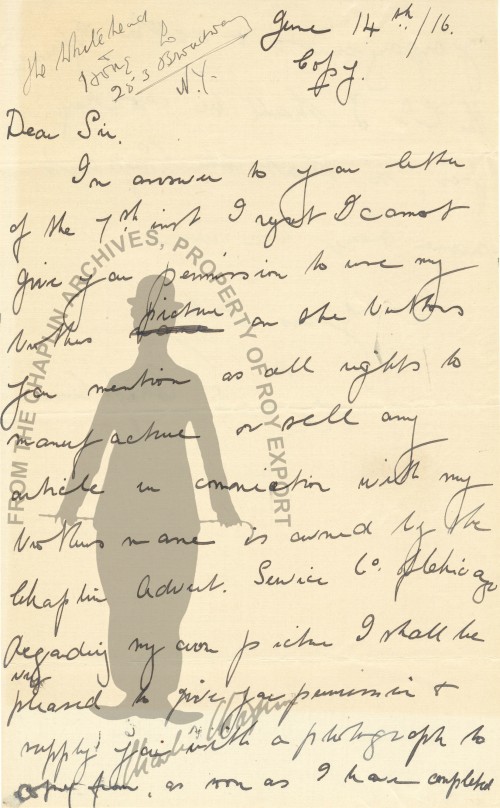 The Whitehead
Hong Co
253 Broadway
N.Y.
June 14th/16.
Copy.
Dear Sir.
In answer to your letter
of the 7th inst I regret I cannot
give you permission to use my
brothers name picture on the buttons
you mention as all rights to
manufacture or sell any
article in connection with my
brothers name is owned by the
Chaplin Advert. Service Co. of Chicago
Regarding my own picture I shall be
very
pleased to give you permission &
supply you with a photograph to
copy from, as soon as I have completed
FROM THE CHAPLIN ARCHIVES, PROPERTY OF ROY EXPORT